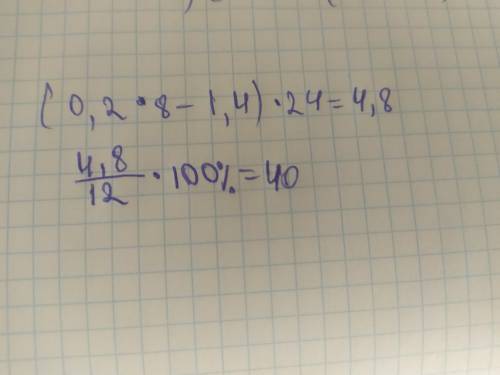 (0,2 • 8 - 1,4) • 24 = 4,8
4,8/12 • 100% = 40